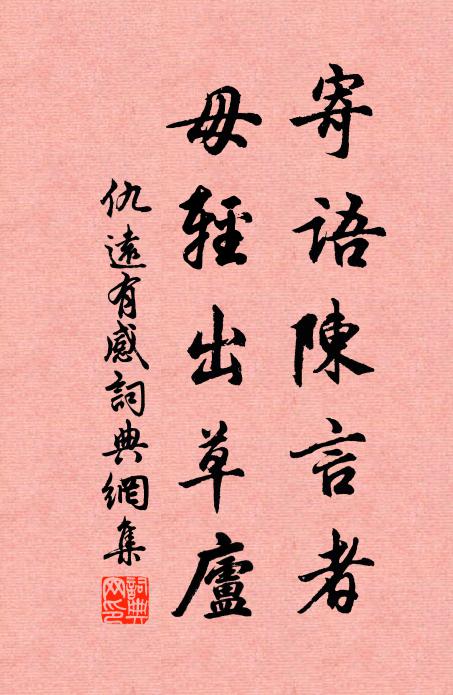 寄語陳言者
毋輕出草廬
仇遠有感詞典網集
詞典網印